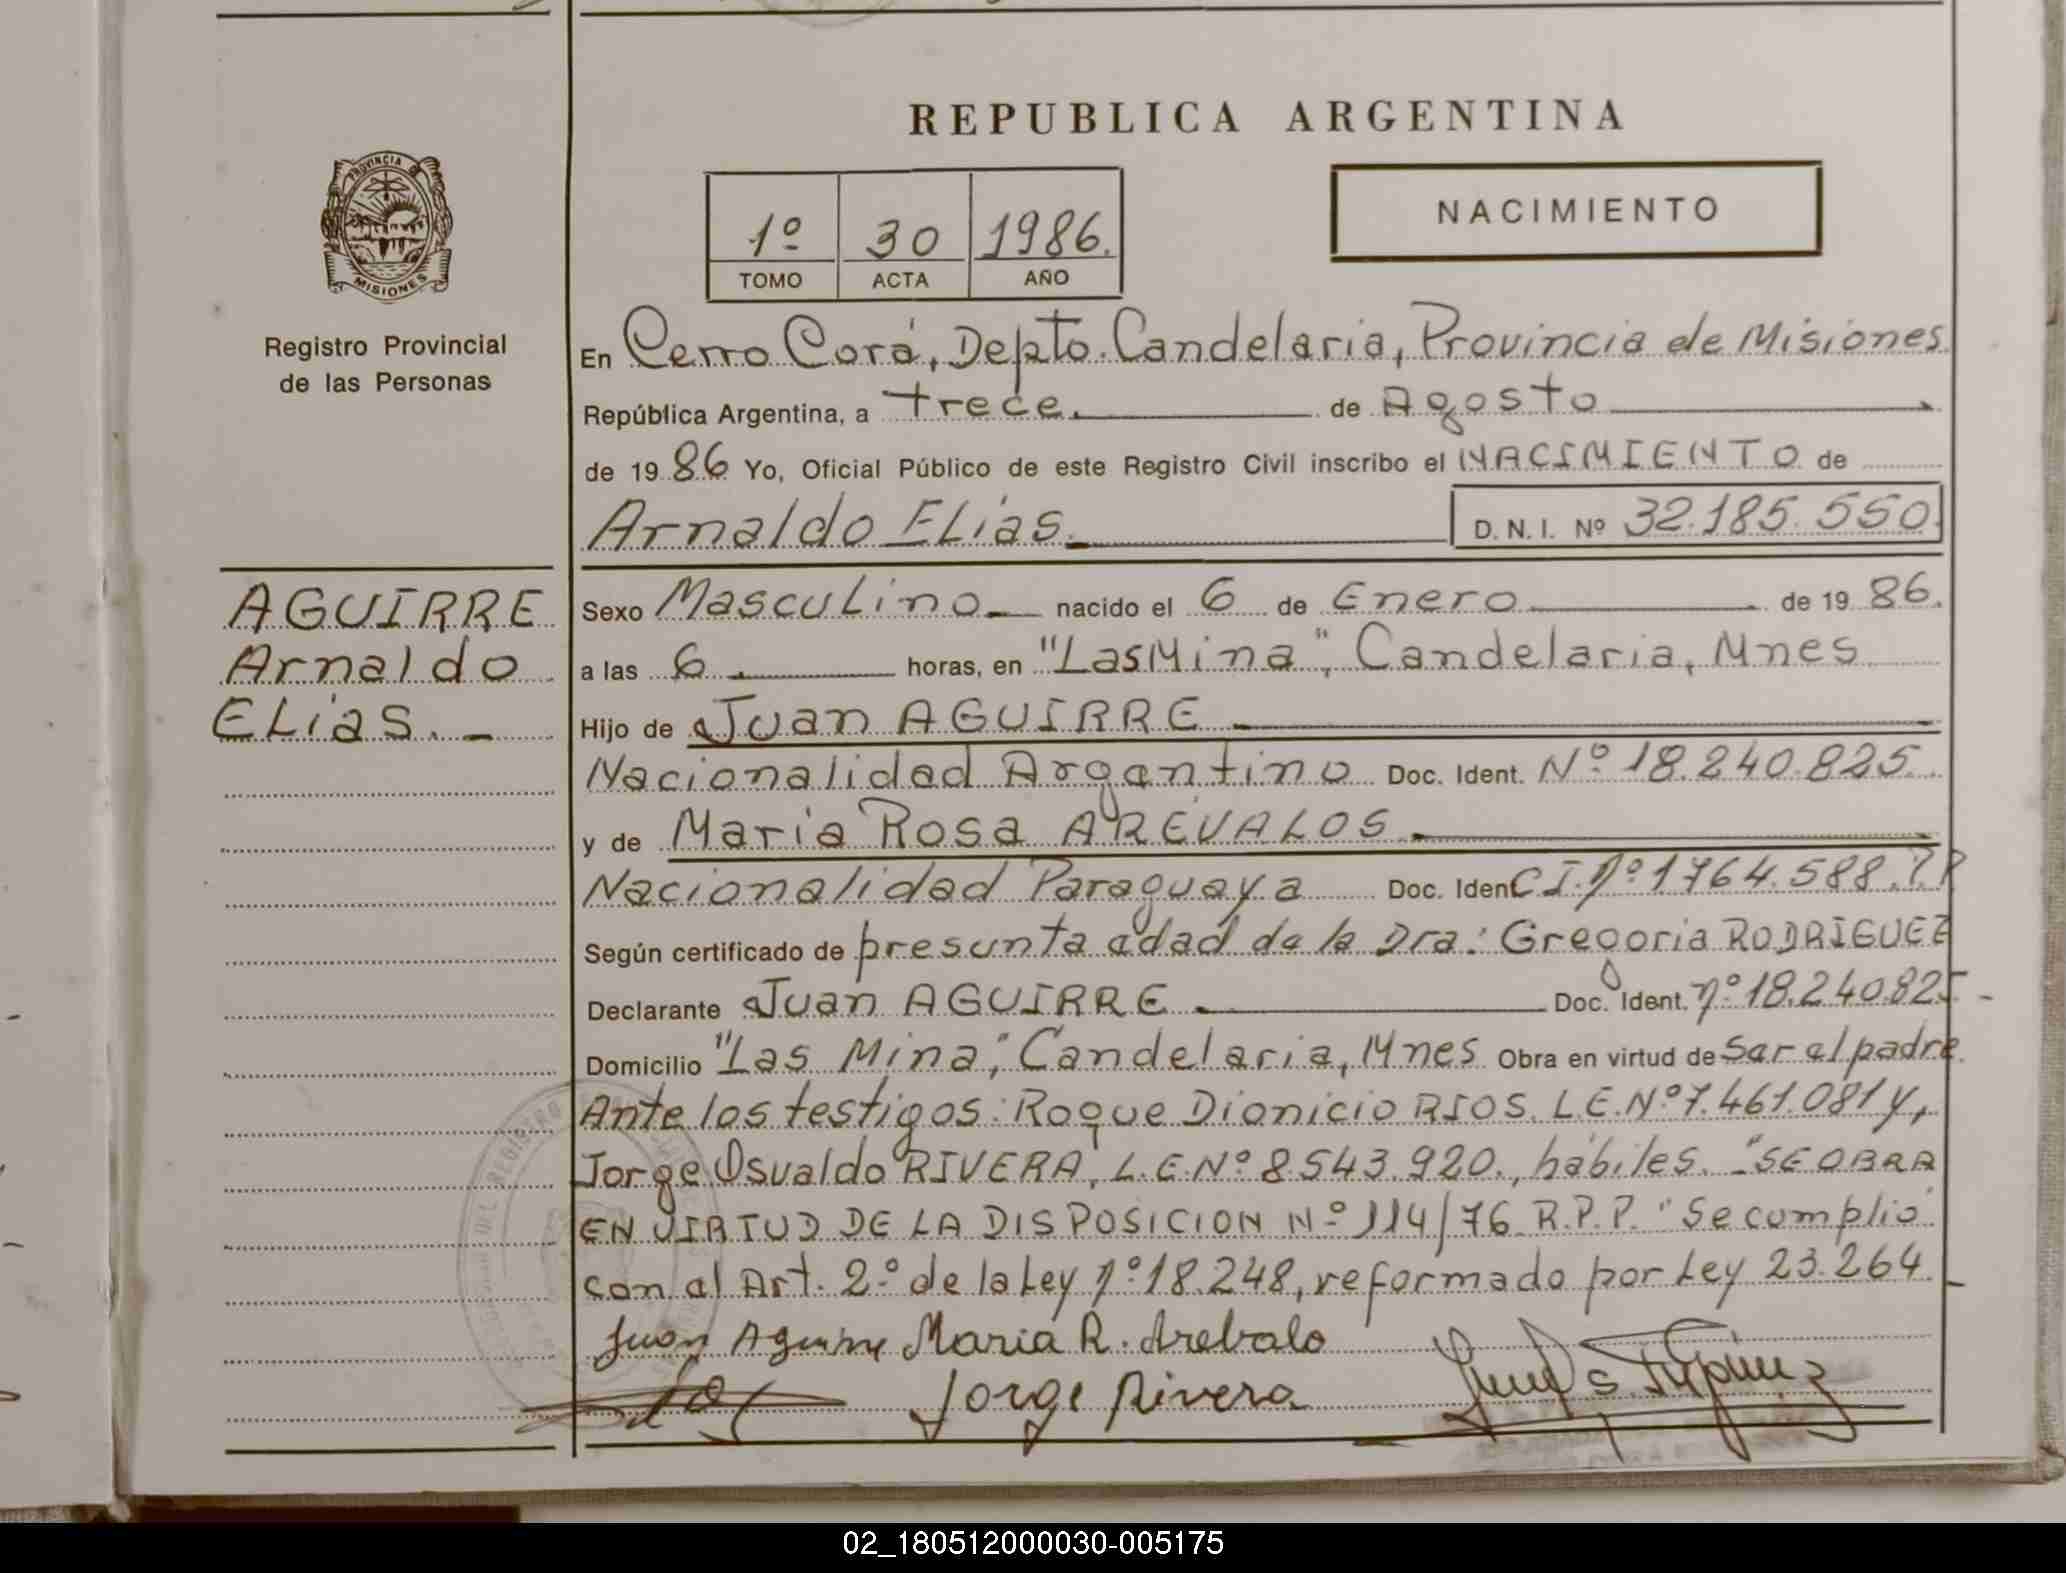 REPUBLICA ARGENTINA
PROVINCIA DE
MISIONES
Registro Provincial
de las Personas
1º 30 1986.
TOMO ACTA AÑO
NACIMIENTO
En Cerro Corá, Depto. Candelaria, Provincia de Misiones
República Argentina, a trece. de Agosto
de 1986 Yo, Oficial Público de este Registro Civil inscribo el NACIMIENTO de
Arnaldo ELias. D. N. I. Nº 32.185.550.
AGUIRRE
Arnaldo
ELias. _
Sexo MascuLino nacido el 6 de Enero de 1986.
a las 6 horas, en "Las Mina", Candelaria, Mnes
Hijo de Juan AGUIRRE
Nacionalidad Argentino Doc. Ident. Nº 18.240.825.
y de Maria Rosa AREVALOS
Nacionalidad Paraguaya Doc. Ident. C.I. nº 1764.588.
Según certificado de presunta edad de la Dra: Gregoria RODRIGUEZ
Declarante Juan AGUIRRE. Doc. Ident. nº 18.240825 -
Domicilio "Las Mina", Candelaria, Mnes Obra en virtud de ser el padre
Ante los testigos: Roque Dionicio RIOS. L.E. Nº 7.461.081 y,
Jorge Osvaldo RIVERA, L.E. Nº 8.543.920., hábiles. "SE OBRA
EN VIRTUD DE LA DISPOSICION Nº 114/76 R.P.P." Se cumplió
con el Art. 2º de la Ley nº 18.248, reformado por Ley 23.264
Juan Aguirre Maria R. Arebalo
Jorge Rivera
DEL REGISTRO
02_180512000030-005175